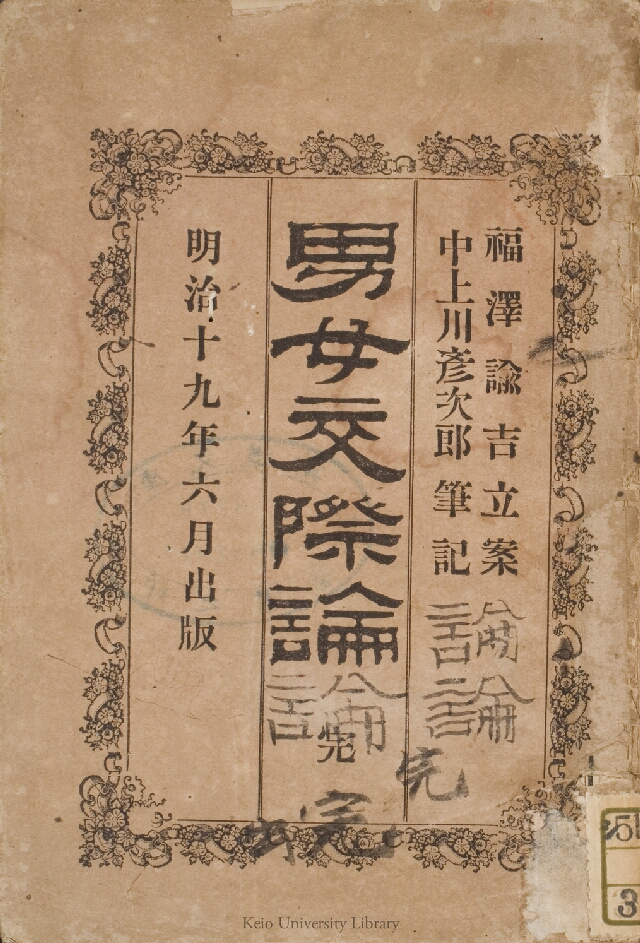 福澤諭吉立案
中上川彦次郎筆記
論
論
完
男女交際論
論
完
完
明治十九年六月出版
5
3
Keio University Library